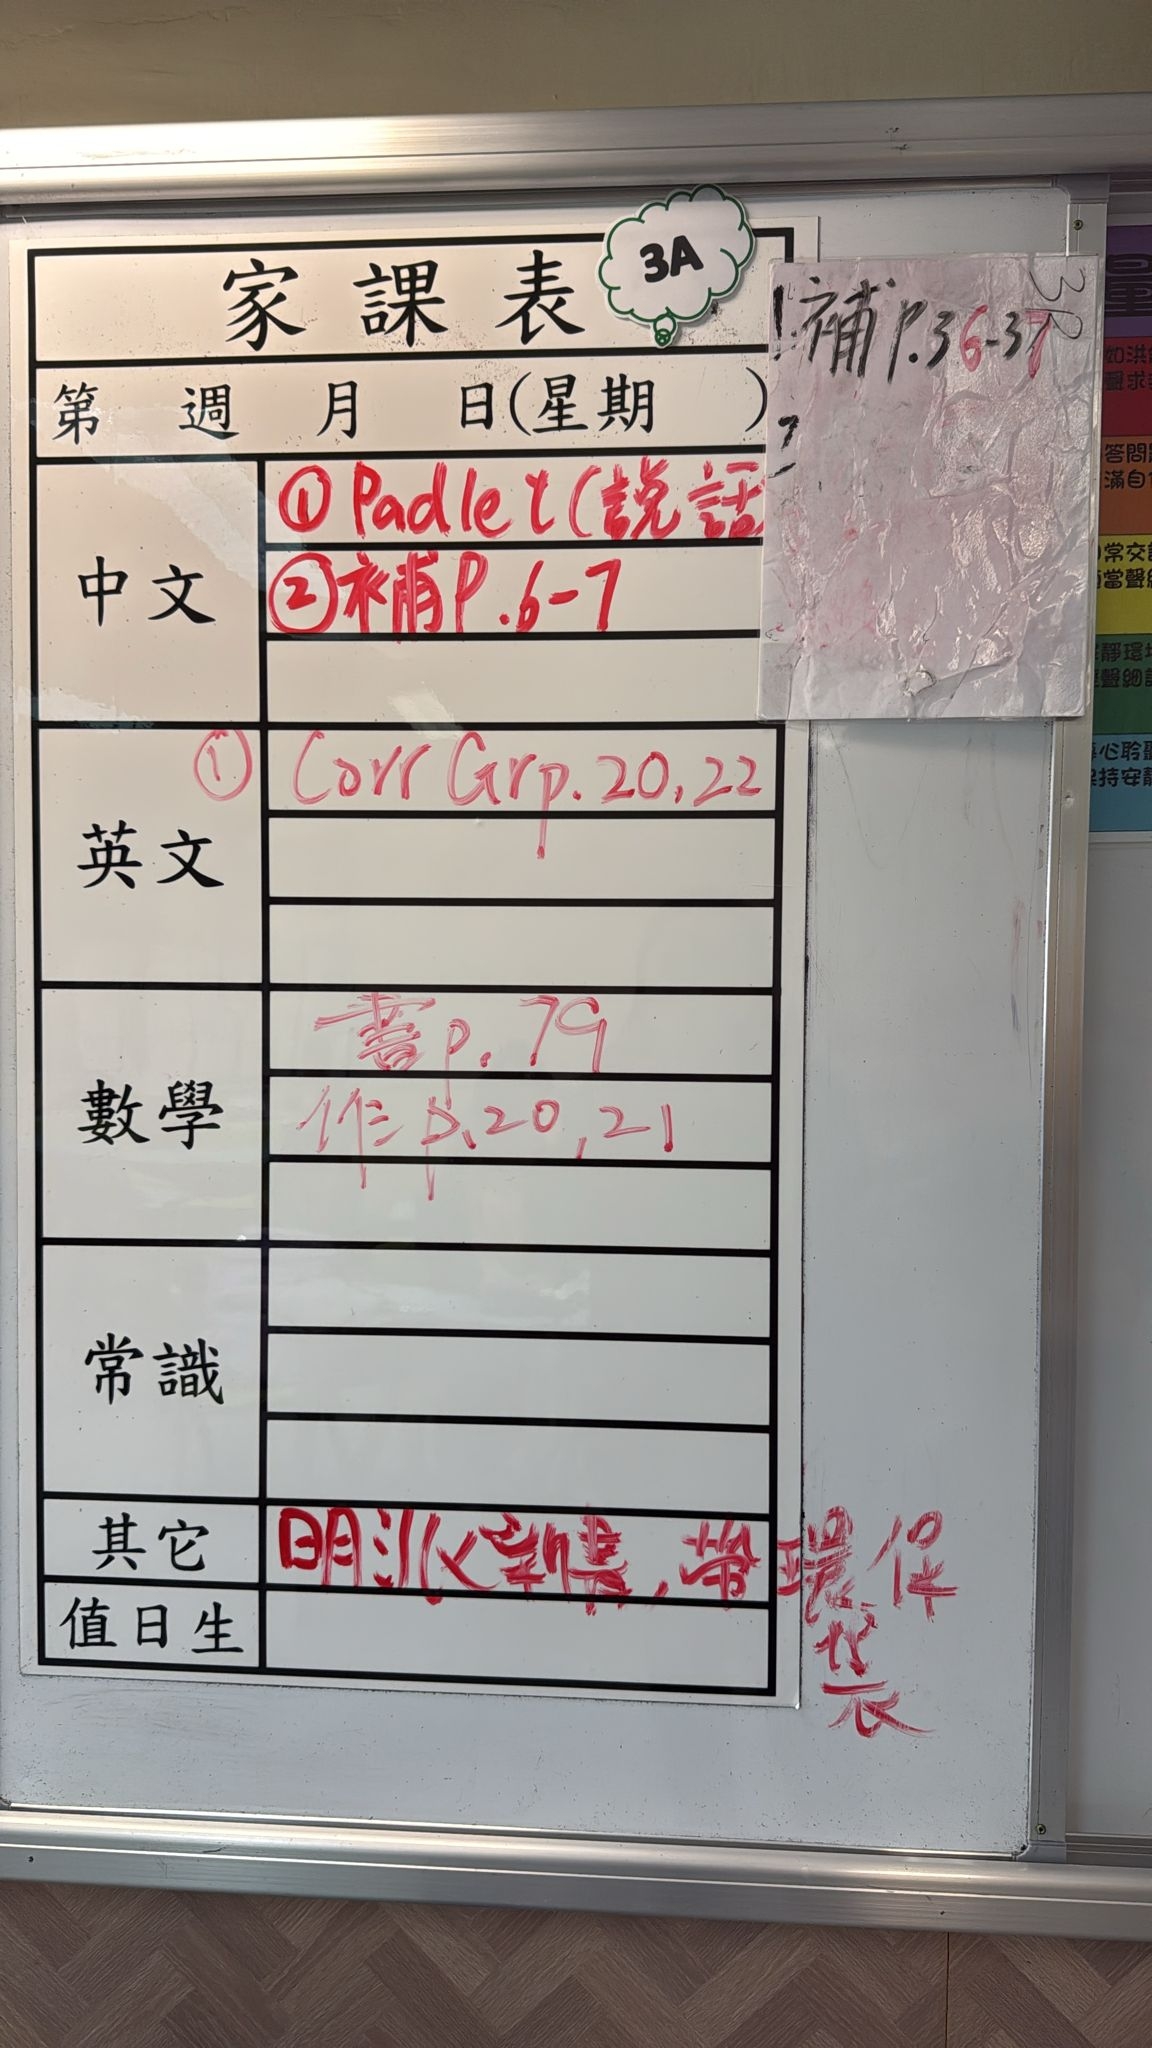 家課表
3A
第 週 月 日(星期 )
3P
補P.36-37
中文
①Padlet(說話
②補P.6-7
英文
① Corr Grp.20,22
數學
書p.79
作p.20,21
常識
其它
明派書,帶環保
袋
值日生
如洪
聲求
答問
滿自
常交
當聲
靜環
聲細
心聆
保持安靜